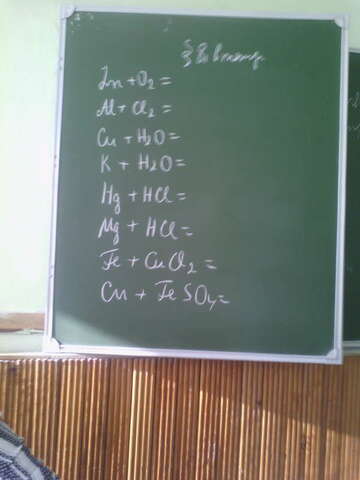 Zn + O₂ =
Al + Cl₂ =
Cu + H₂O =
K + H₂O =
Hg + HCl =
Mg + HCl =
Fe + CuCl₂ =
Cu + FeSO₄ =